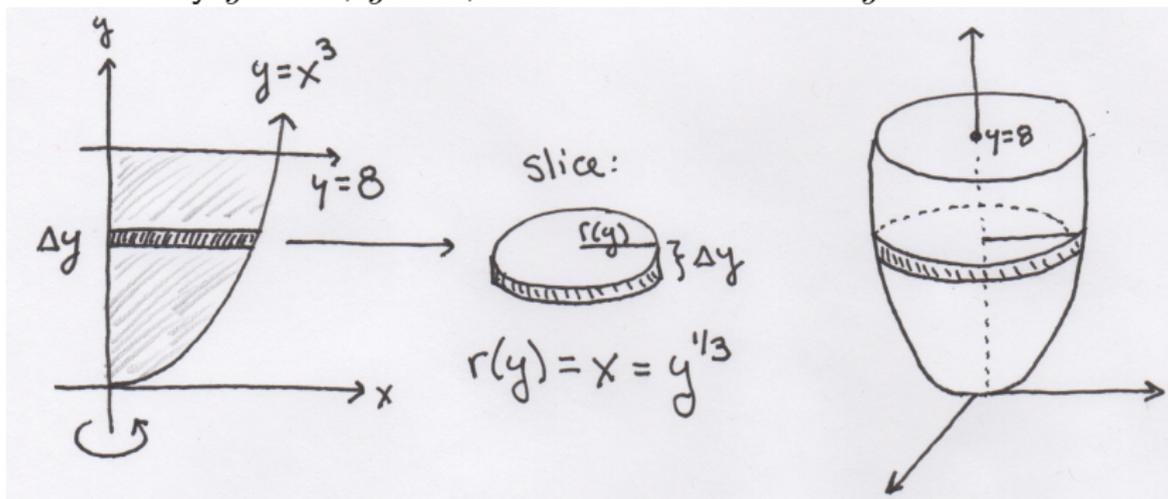 y
y=x³
y=8
Δy
x
slice:
r(y)
Δy
r(y) = x = y^1/3
y=8